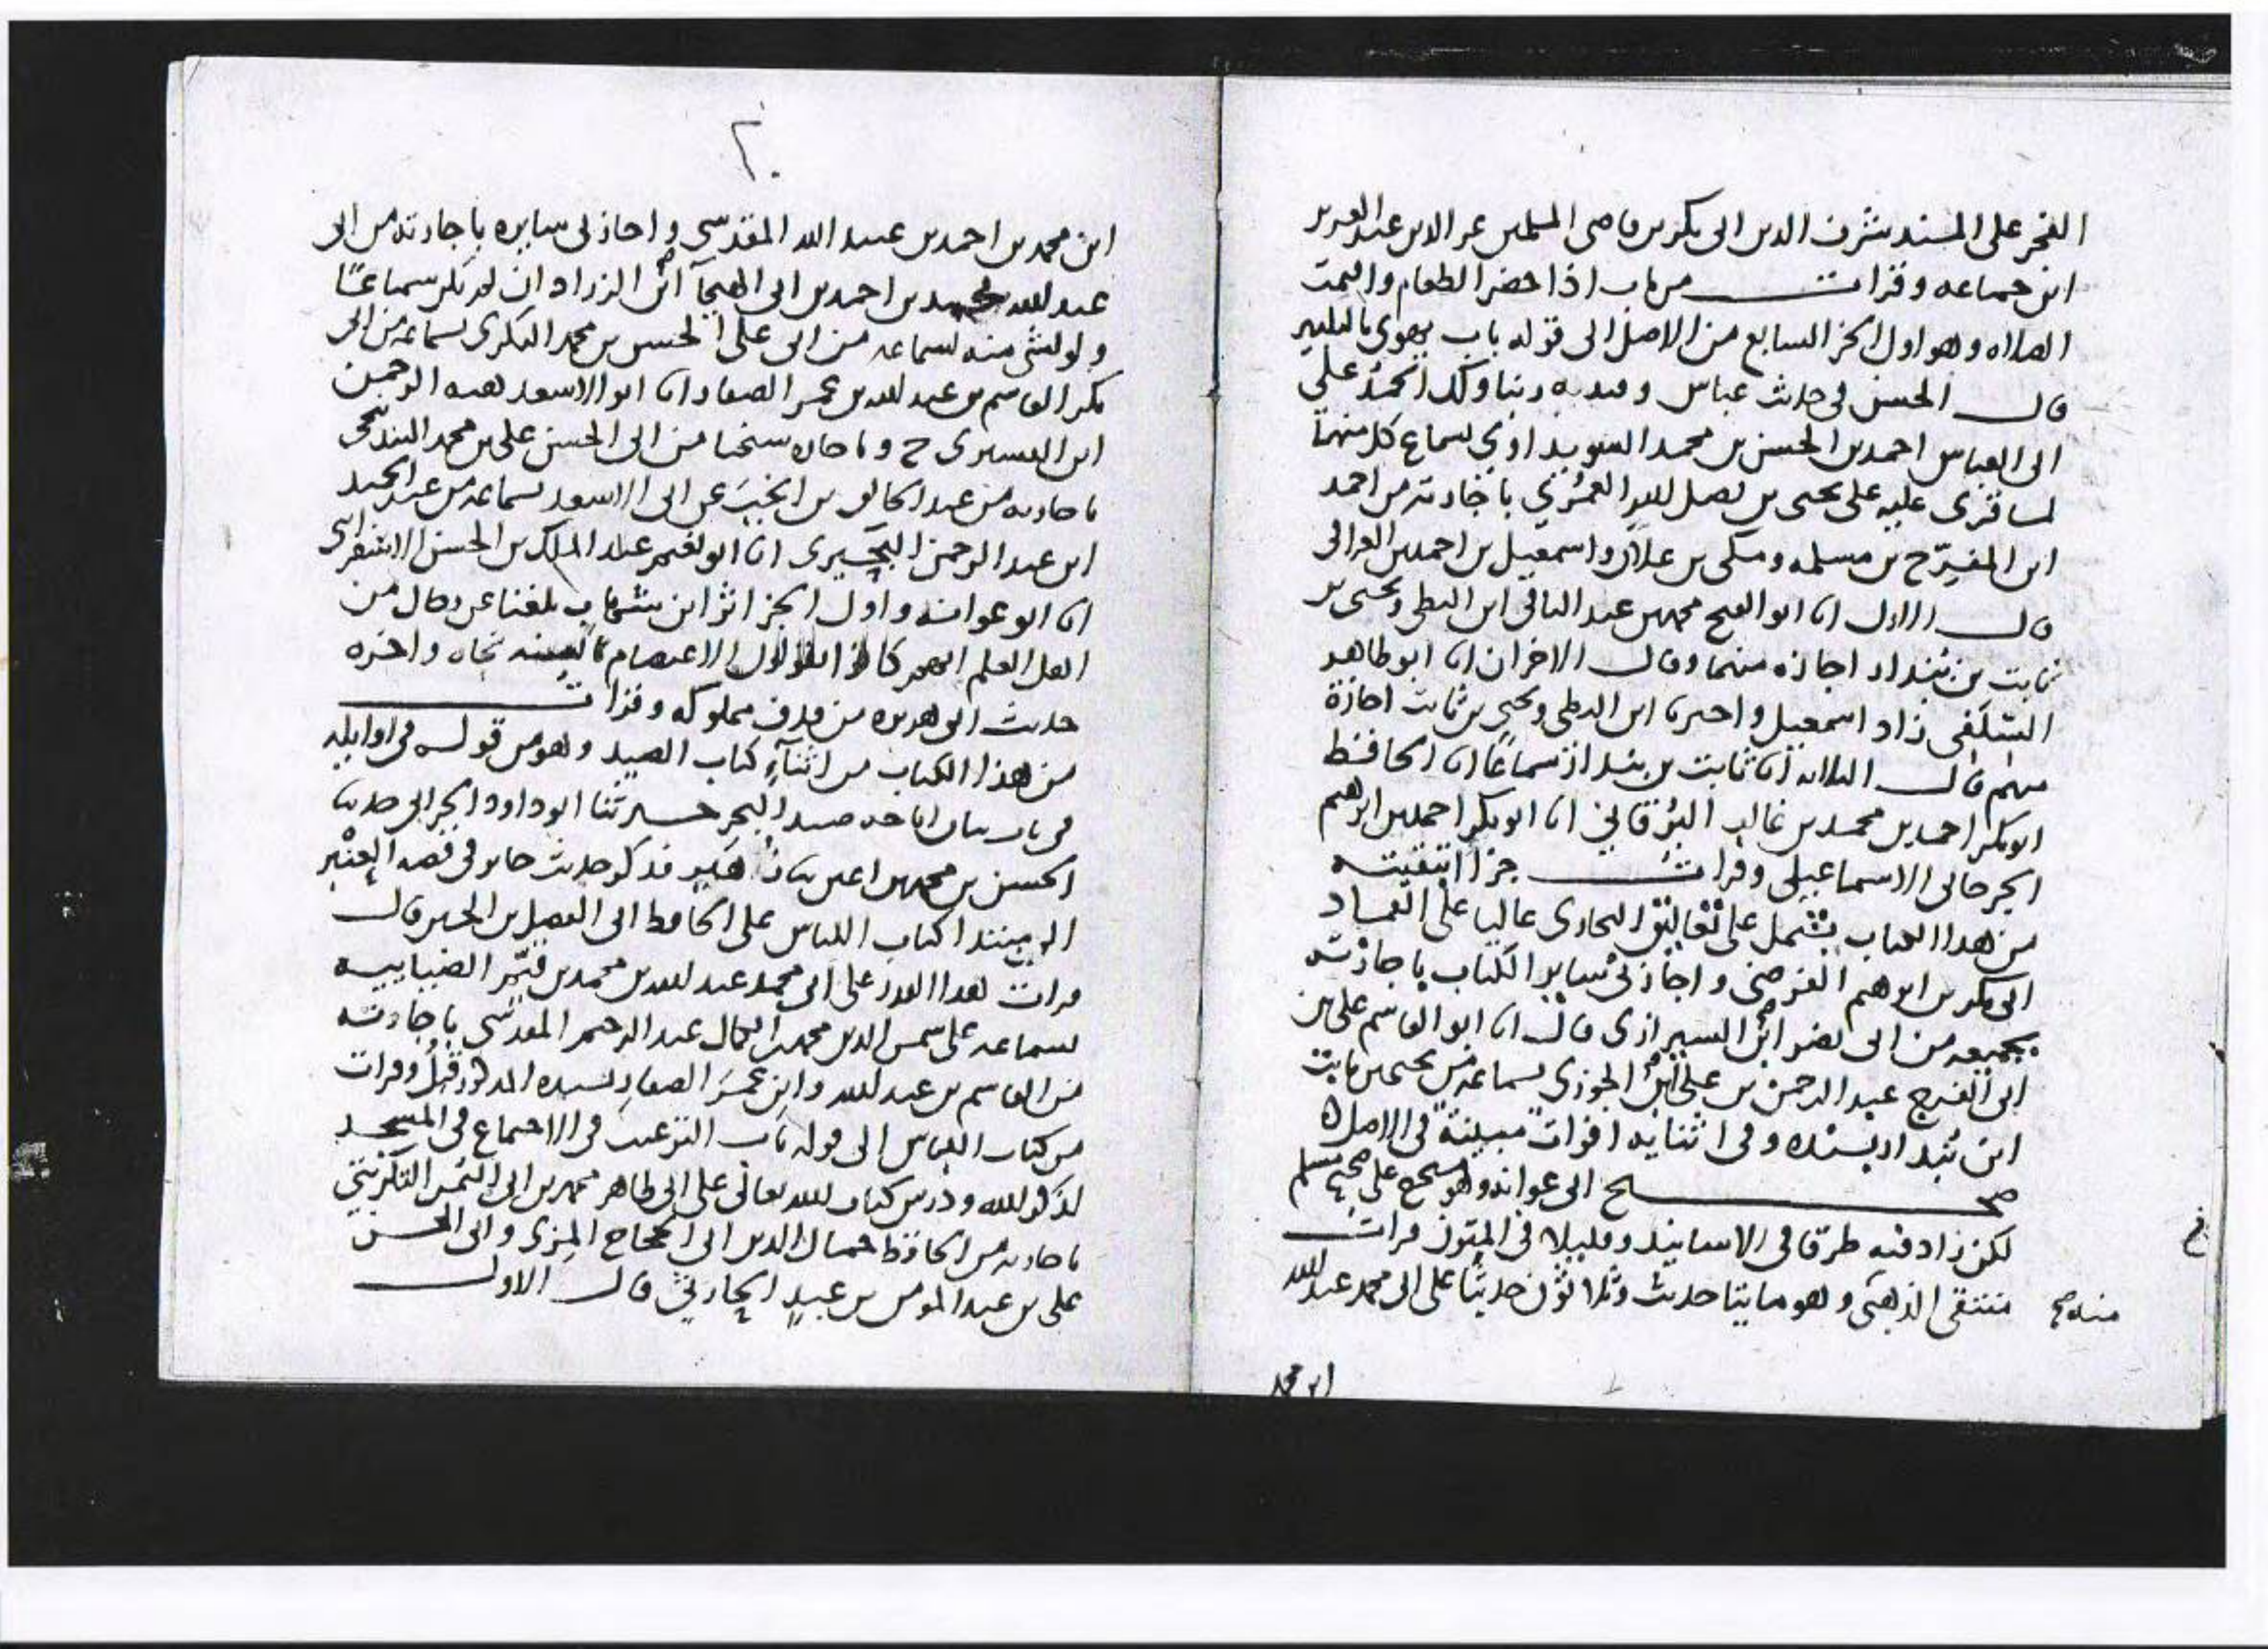 الفخر على المسند شرف الدين ابى بكر بن قاضى المسلمين عز الدين عبد العزيز
ابن جماعه وقرات من باب اذا حضر الطعام واقيمت
الصلاه وهو اول الجز السابع من الاصل الى قوله باب يهوى بالتكبير
قال الحسن فى حديث عباس وفيه ربنا ولك الحمد على
ابى العباس احمد بن الحسن بن محمد السويداوى بسماع كل منهما
لما قرى عليه على يحيى بن فضل الله العمرى باجازته من احمد
ابن المفرج بن مسلمه ومكى بن علان واسمعيل بن احمد بن العراقى
قال الاول انا ابو الفتح محمد بن عبد الباقى ابن البطى ويحيى بن
ثابت بن بندار اجازه منهما وقال الاخران انا ابو طاهر
السلفى زاد اسمعيل واخبرنا ابن البطى ويحيى بن ثابت اجازة
منهم قال الثلاثه انا ثابت بن بندار سماعا انا الحافظ
ابو بكر احمد بن محمد بن غالب البرقانى انا ابو بكر احمد بن ابرهيم
الجرجانى الاسماعيلى وقرات جزا انتقيته
من هذا الكتاب يشتمل على تعاليق البخارى عاليا على العماد
ابى بكر بن ابرهيم الفرضى واجاز لى ساير الكتاب باجازته
بجميعه من ابى نصر ابن الشيرازى قال انا ابو القاسم على بن
ابى الفرج عبد الرحمن بن على ابن الجوزى بسماعه من يحيى بن ثابت
ابن بندار بسنده وفى اثنايه افوات مبينة فى الاصل ه
صحيح ابى عوانه وهو مستخرج على صحيح مسلم
لكن زاد فيه طرقا فى الاسانيد وقليلا فى المتون قرات
منه صح منتقى الذهبى وهو مايتا حديث وثلاثون حديثا على ابى محمد عبد الله
ابن محمد
٢٠
ابن محمد بن احمد بن عبيد الله المقدسى واجاز لى سايره باجازته من ابى
عبد الله محمد بن احمد بن ابى الهيجآ ابن الزراد ان لم يكن سماعا
ولو لشى منه بسماعه من ابى على الحسن بن محمد البكرى بسماعه من ابى
بكر القاسم بن عبد الله بن عمر الصفار انا ابو الاسعد هبه الرحمن
ابن القشيرى ح وباجازه شيخنا من ابى الحسن على بن محمد البندنيجى
باجازته من عبد الخالق بن انجب عن ابى الاسعد بسماعه من عبد الحميد
ابن عبد الرحمن البحيرى انا ابو نعيم عبد الملك بن الحسن الاسفراينى
انا ابو عوانه واول الجز اثر ابن شهاب بلغنا عن رجال من
اهل العلم انهم كانوا يقولون الاعتصام بالسنه نجاه واخره
حديث ابى هريره من قذف مملوكه وقرات
من هذا الكتاب من اثنآء كتاب الصيد وهو من قوله فى اوايله
فى باب بيان اباحه صيد البحر حدثنا ابو داود الحرانى حدثنا
الحسن بن محمد بن اعين ثنا زهير فذكر حديث جابر فى قصه العنبر
الى مبتدا كتاب اللباس على الحافظ ابى الفضل بن الحسين قال
قرات هذا القدر على ابى محمد عبد الله بن محمد بن قيم الضيابيه
بسماعه على شمس الدين محمد بن الكمال عبد الرحيم المقدسى باجازته
من القاسم بن عبد الله وابن عمر الصفار بسنده المذكور قبل وقرات
من كتاب اللباس الى قوله باب الترغيب فى الاجتماع فى المسجد
لذكر الله ودرس كتاب الله تعالى على ابى طاهر محمد بن ابى اليمن التكريتى
باجازته من الحافظ جمال الدين ابى الحجاج المزى وابى الحسن
على بن عبد المومن بن عبد الحارثى قال الاول